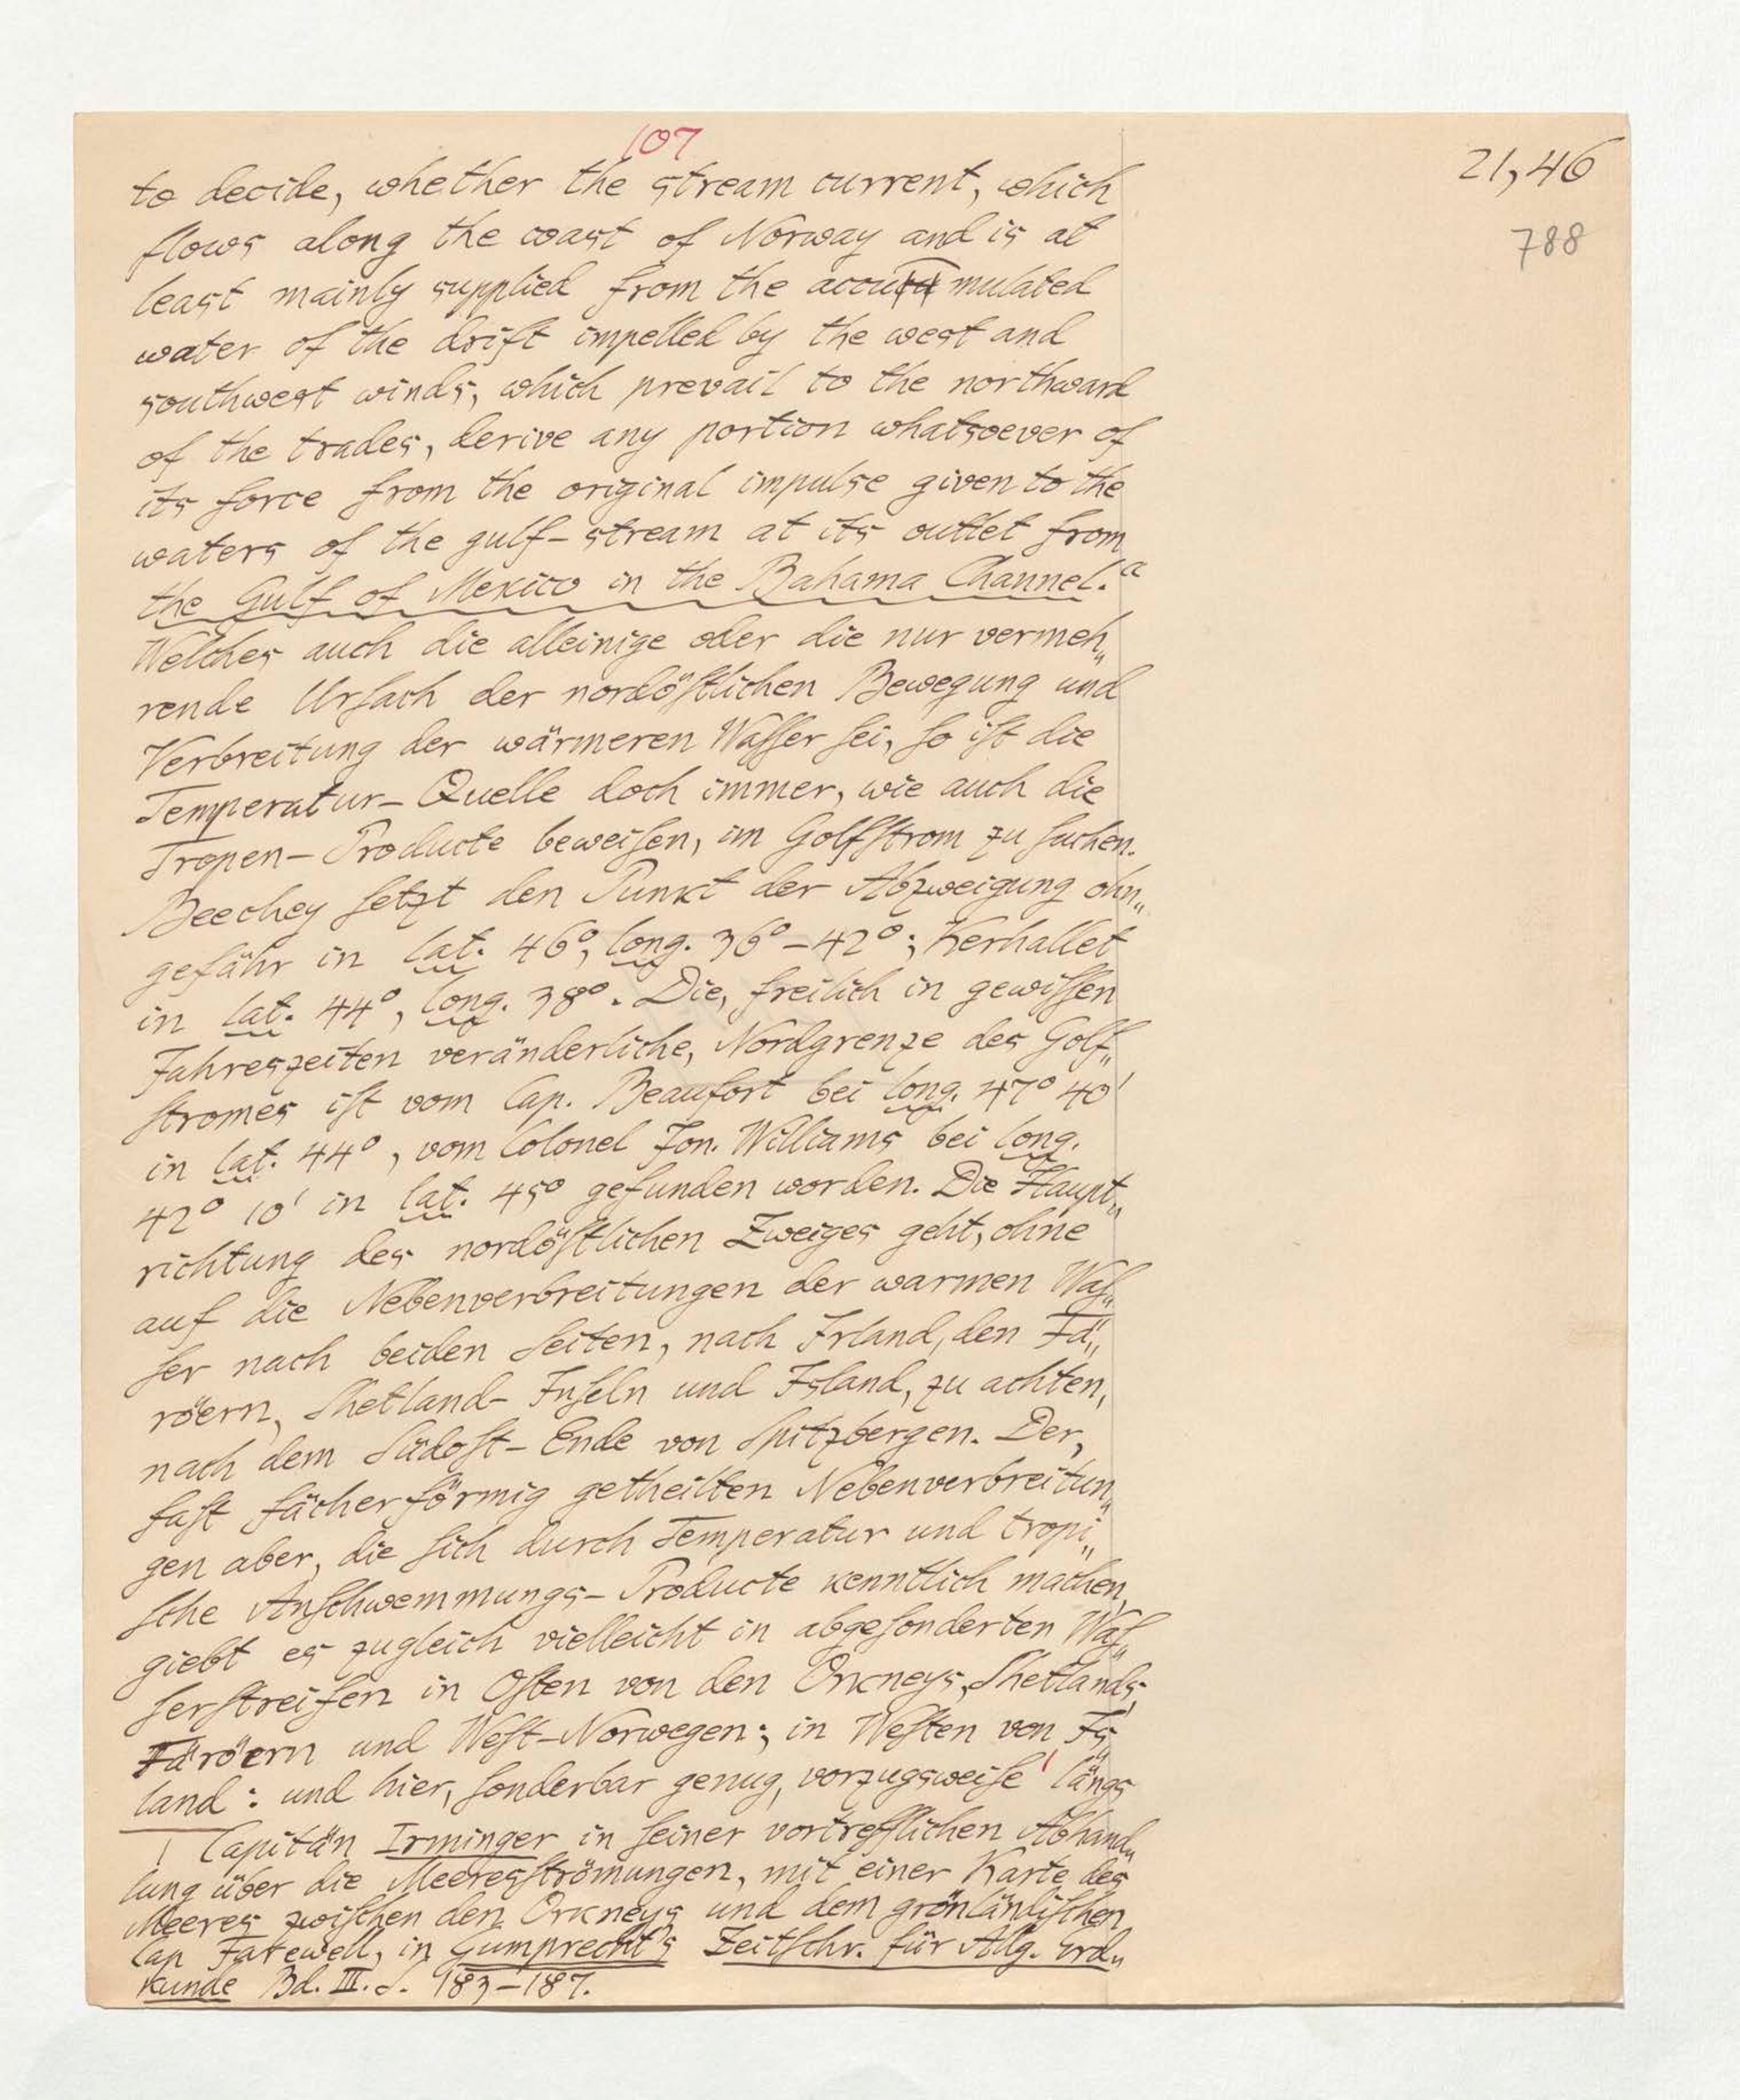 107
21,46
788
to decide, whether the stream current, which
flows along the coast of Norway and is at
least mainly supplied from the accumulated
water of the drift impelled by the west and
southwest winds, which prevail to the northward
of the trades, derive any portion whatsoever of
its force from the original impulse given to the
waters of the gulf-stream at its outlet from
the Gulf of Mexico in the Bahama Channel.“
Welches auch die alleinige oder die nur vermeh„
rende Urſach der nordöſtlichen Bewegung und
Verbreitung der wärmeren Waſſer ſei, ſo iſt die
Temperatur-Quelle doch immer, wie auch die
Tropen-Producte beweiſen, im Golfſtrom zu ſuchen.
Beechey ſetzt den Punkt der Abzweigung ohn„
gefähr in lat. 46°, long. 36°–42°; Kerhallet
in lat. 44°, long. 38°. Die, freilich in gewiſſen
Jahreszeiten veränderliche, Nordgrenze des Golf„
ſtromes iſt vom Cap. Beaufort bei long. 47° 40'
in lat. 44°, vom Colonel Jon. Williams bei long.
42° 10' in lat. 45° gefunden worden. Die Haupt„
richtung des nordöſtlichen Zweiges geht, ohne
auf die Nebenverbreitungen der warmen Waſ„
ſer nach beiden Seiten, nach Irland, den Fä„
röern, Shetland-Inſeln und Island, zu achten,
nach dem Südoſt-Ende von Spitzbergen. Der,
faſt fächerförmig getheilten Nebenverbreitun„
gen aber, die ſich durch Temperatur und tropi„
ſche Anſchwemmungs-Producte kenntlich machen,
giebt es zugleich vielleicht in abgeſonderten Waſ„
ſerſtreifen in Oſten von den Orkneys, Shetlands,
Färöern und Weſt-Norwegen; in Weſten von Is„
land: und hier, ſonderbar genug, vorzugsweiſe' längs
' Capitän Irminger in ſeiner vortrefflichen Abhand„
lung über die Meeresſtrömungen, mit einer Karte des
Meeres zwiſchen den Orkneys und dem grönländiſchen
Cap Farewell, in Gumprecht's Zeitſchr. für Allg. Erd„
kunde Bd. III. S. 183–187.